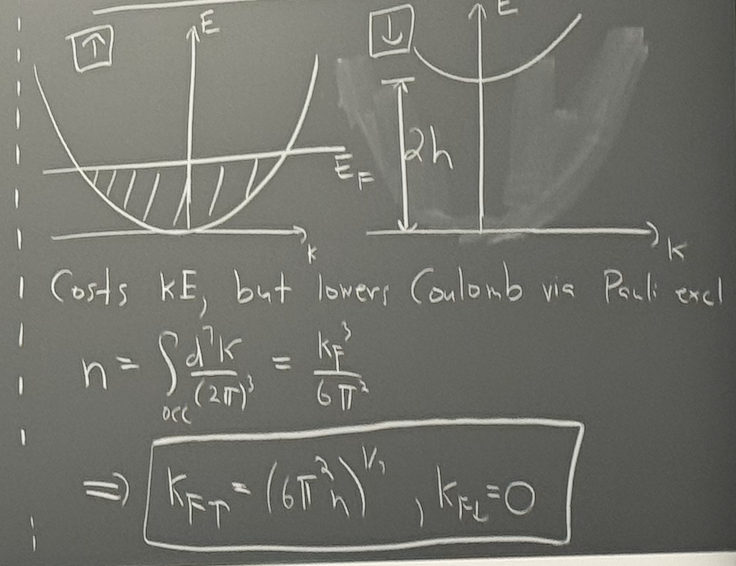 ↑ E
E_F
k
↓ E
2h
k
Costs KE, but lowers Coulomb via Pauli excl
n = ∫_occ d³k/(2π)³ = k_F³/6π²
⇒ k_F↑ = (6π²n)^1/3 , k_F↓ = 0